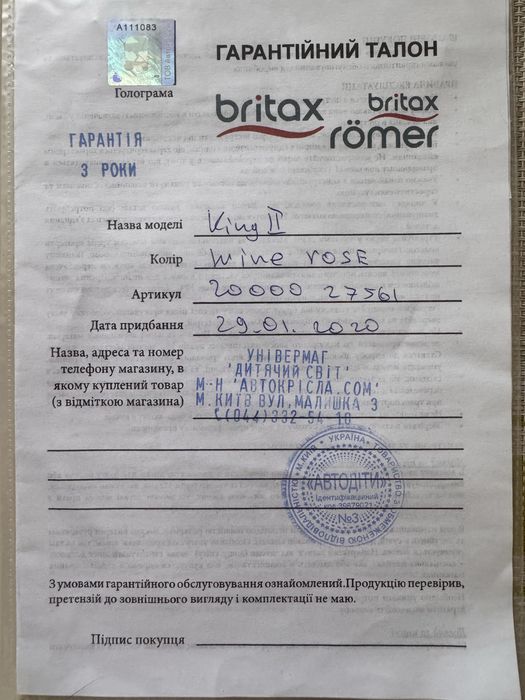 A111083
ГАРАНТІЙНИЙ ТАЛОН
Голограма
britax
britax
römer
ГАРАНТІЯ
3 РОКИ
Назва моделі King II
Колір wine rose
Артикул 20000 27561
Дата придбання 29.01.2020
Назва, адреса та номер
телефону магазину, в
якому куплений товар
(з відміткою магазина)
УНІВЕРМАГ
'ДИТЯЧИЙ СВІТ'
М-Н 'АВТОКРІСЛА.COM'
М.КИЇВ ВУЛ.МАЛИШКА 3
Т(044)332-54-10
УКРАЇНА * ТОВАРИСТВО З ОБМЕЖЕНОЮ ВІДПОВІДАЛЬНІСТЮ * М.КИЇВ
«АВТОДІТИ»
Ідентифікаційний
код 39679021
№3
З умовами гарантійного обслуговування ознайомлений.Продукцію перевірив,
претензій до зовнішнього вигляду і комплектації не маю.
Підпис покупця